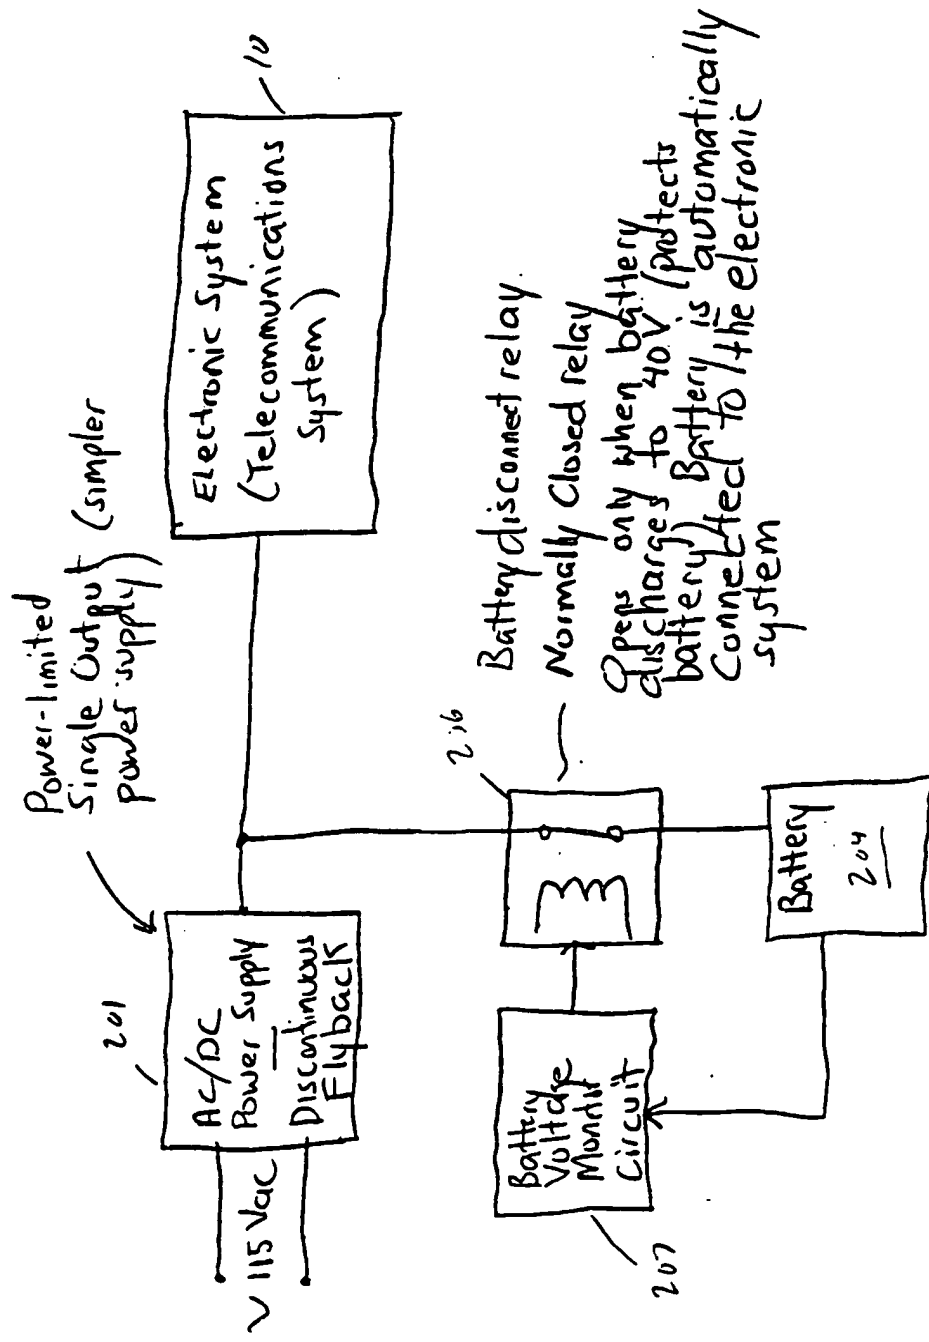 Power-limited
Single Output (simpler
power supply)
201
AC/DC
Power Supply
Discontinuous
Flyback
115 Vac
10
Electronic System
(Telecommunications
System)
216
Battery disconnect relay
Normally Closed relay
Opens only when battery
discharges to 40V (protects
battery) Battery is automatically
Connected to the electronic
system
Battery
Voltage
Monitor
Circuit
207
Battery
204